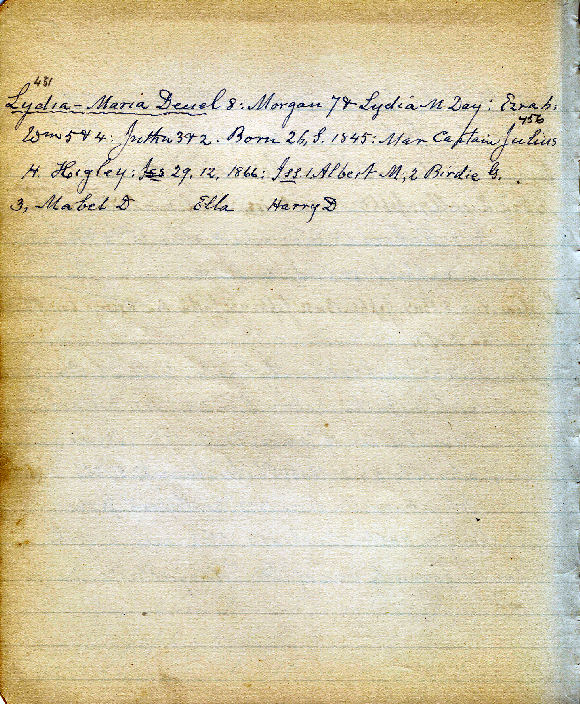 431
Lydia-Maria Deuel 8: Morgan 7 & Lydia M Day: Ezra 6:
Wm 5 & 4: Jnthn 3 & 2. Born 26, 8. 1845: Mar Captain Julius
456
H. Higley: 29, 12, 1866: Iss 1 Albert M, 2 Birdie G,
3, Mabel D Ella Harry D